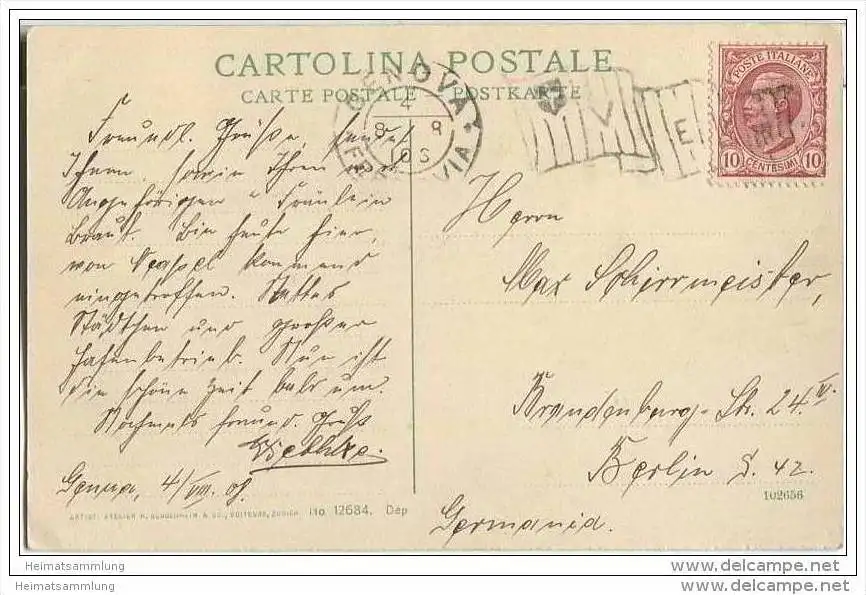 CARTOLINA POSTALE
CARTE POSTALE - POSTKARTE
GENOVA
4
8 - 8
08
FERROVIA
POSTE ITALIANE
10 CENTESIMI 10
Freundl. Grüße, sendet
Ihnen, sowie Ihren
Angehörigen u Fräulein
Braut. Bin heute hier,
von Neapel kommend
eingetroffen. Nettes
Städtchen und großer
Hafenbetrieb. Nun ist
die schöne Zeit bald um.
Nochmals freund. Gruß
Genua, 4/VIII. 08.
Herrn
Max Schirrmeister,
Brandenburg-Str. 24 IV.
Berlin S. 42.
Germania.
102656
ARTIST. ATELIER H. GUGGENHEIM & CO., EDITEURS, ZÜRICH. No. 12684. Dep
Heimatsammlung
Heimatsammlung
www.delcampe.net
www.delcampe.net